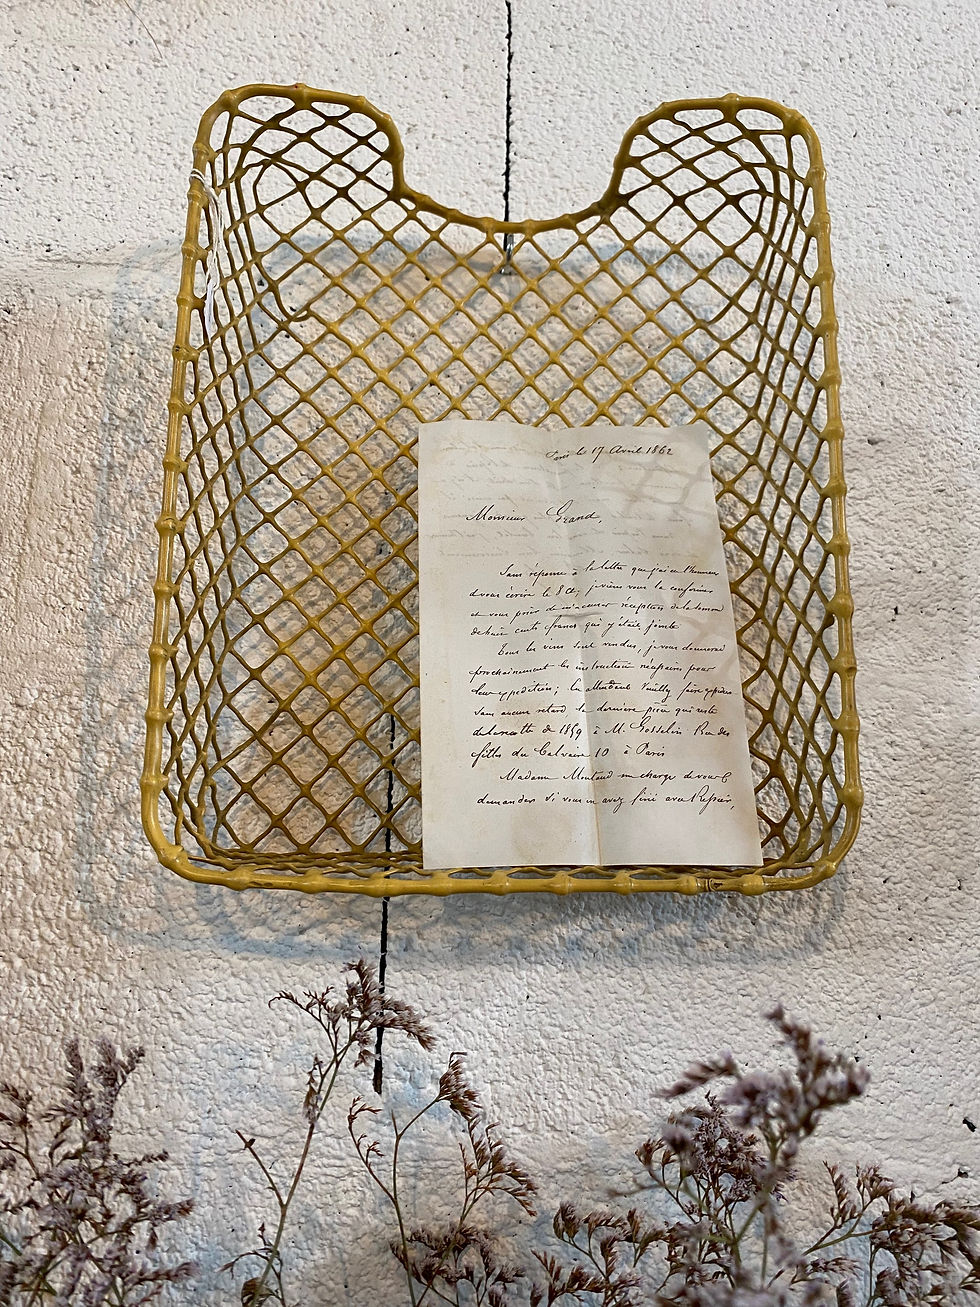 Paris le 17 Avril 1862
Monsieur Grand,
Sans réponse à la lettre que j'ai eu l'honneur
d'vous écrire le 8 Ct, je viens vous la confirmer
et vous prier de m'accuser réception de la somme
de huit cents francs qui y était jointe
Tous les vins sont vendus, je vous donnerai
prochainement les instructions nécessaires pour
leur expédition; en attendant Veuillez faire expédier
sans aucun retard la dernière pièce qui reste
de la récolte de 1859 à M. Gosselin Rue des
filles du Calvaire 10 à Paris
Madame me charge de vous
demander si vous en avez fini avec